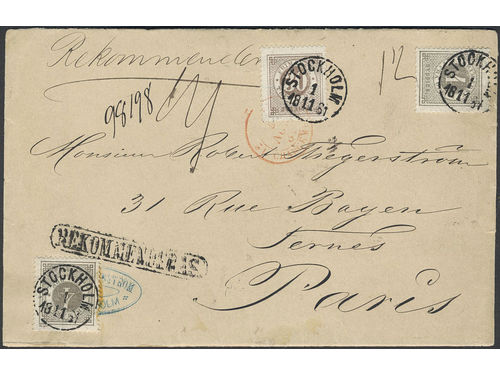 Rekommenderas
12
98198
STOCKHOLM
1
18 11 81
STOCKHOLM
1
18 11 81
Monsieur Robert Thegerström
31 Rue Bayen
Ternes
Paris
REKOMMENDERAS
STOCKHOLM
1
18 11 81